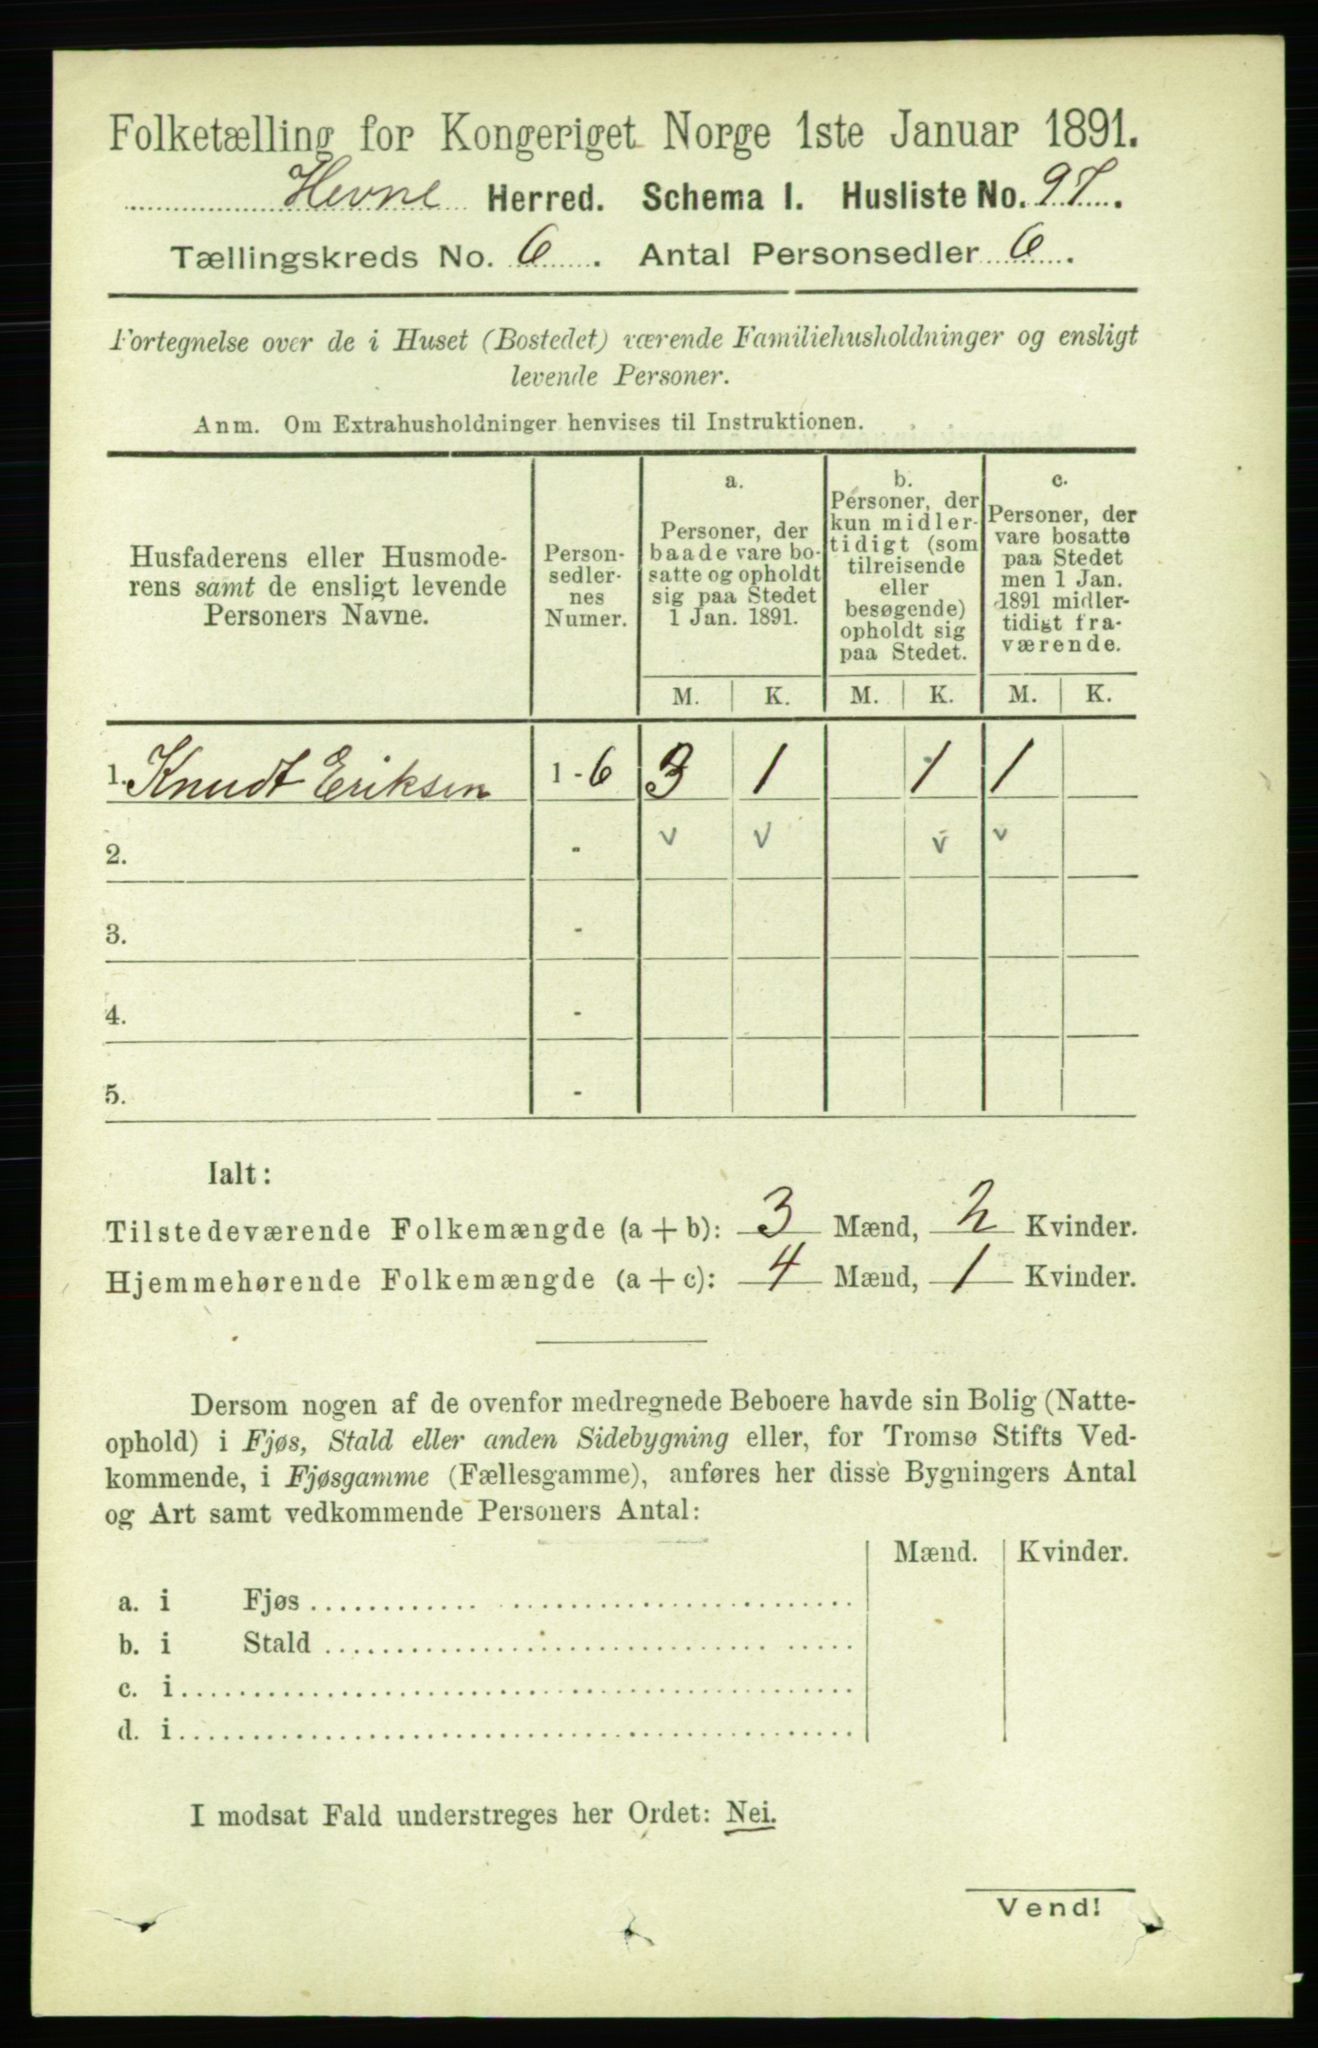 Folketælling for Kongeriget Norge 1ste Januar 1891.
Hevne Herred. Schema I. Husliste No. 97.
Tællingskreds No. 6. Antal Personsedler 6.
Fortegnelse over de i Huset (Bostedet) værende Familiehusholdninger og ensligt
levende Personer.
Anm. Om Extrahusholdninger henvises til Instruktionen.
Husfaderens eller Husmode-
rens samt de ensligt levende
Personers Navne.
Person-
sedler-
nes
Numer.
a.
Personer, der
baade vare bo-
satte og opholdt
sig paa Stedet
1 Jan. 1891.
b.
Personer, der
kun midler-
tidigt (som
tilreisende
eller
besøgende)
opholdt sig
paa Stedet.
c.
Personer, der
vare bosatte
paa Stedet
men 1 Jan.
1891 midler-
tidigt fra-
værende.
M. K. M. K. M. K.
1. Knudt Eriksen 1 - 6 3 1 1 1
2. - v v v v
3. -
4. -
5. -
Ialt:
Tilstedeværende Folkemængde (a + b): 3 Mænd, 2 Kvinder.
Hjemmehørende Folkemængde (a + c): 4 Mænd, 1 Kvinder.
Dersom nogen af de ovenfor medregnede Beboere havde sin Bolig (Natte-
ophold) i Fjøs, Stald eller anden Sidebygning eller, for Tromsø Stifts Ved-
kommende, i Fjøsgamme (Fællesgamme), anføres her disse Bygningers Antal
og Art samt vedkommende Personers Antal:
Mænd. Kvinder.
a. i Fjøs
b. i Stald
c. i
d. i
I modsat Fald understreges her Ordet: Nei.
Vend!